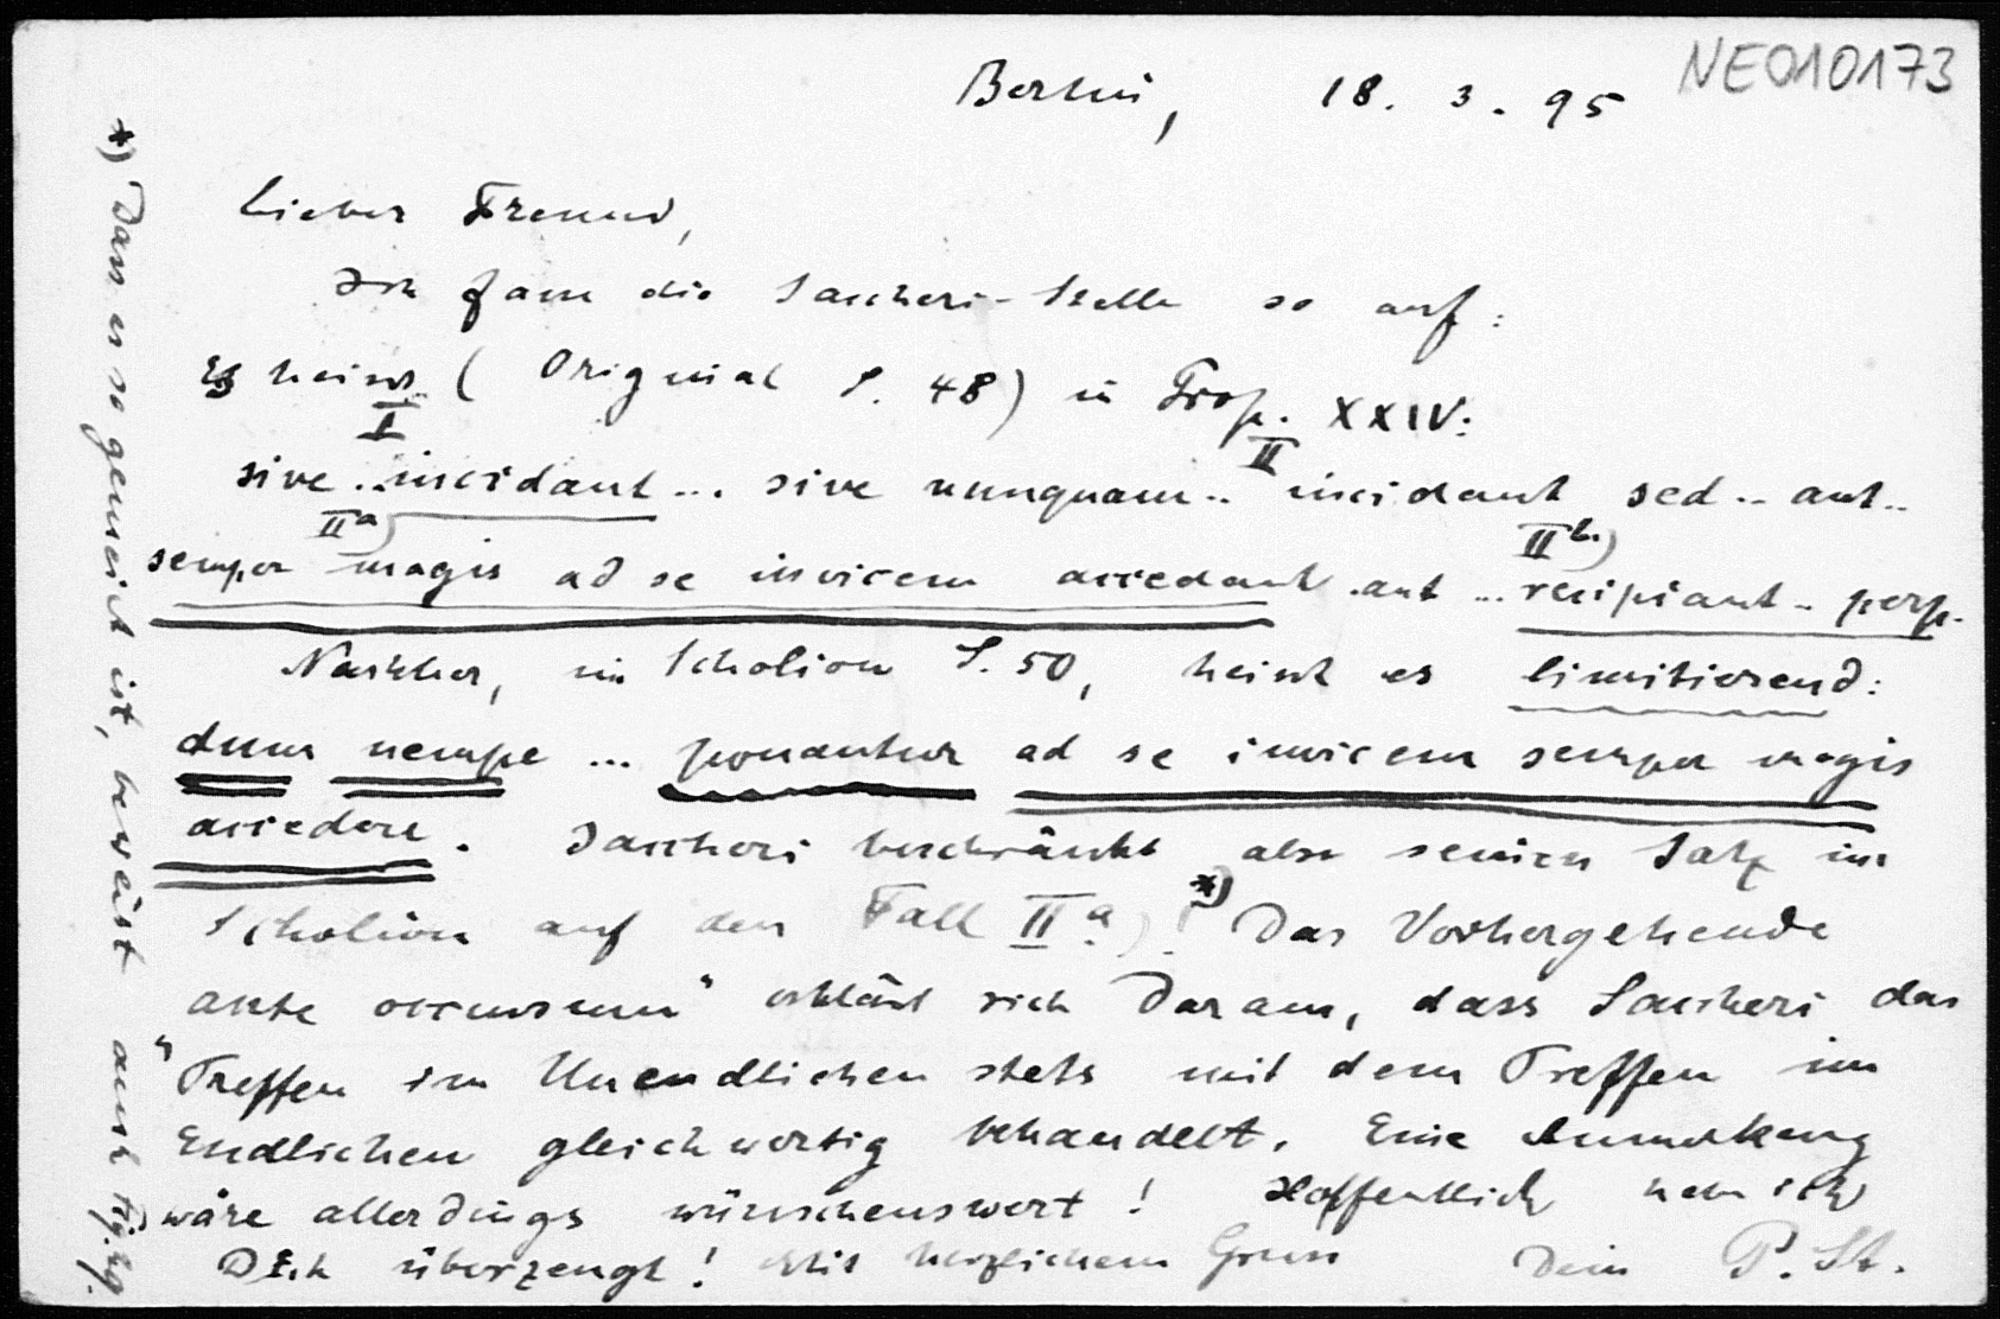 NE010173
Berlin, 18. 3. 95
Lieber Freund,
Ich fasse die Saccheri-Stelle so auf:
Es heisst (Original S. 48) in Prop. XXIV:
I II
sive .. incidant ... sive nunquam .. incidant sed .. aut ..
IIa) IIb.)
semper magis ad se invicem accedant .aut ... recipiant .. perp.
Nachher, im Scholion S. 50, heisst es limitierend:
dum nempe ... ponantur ad se invicem semper magis
accedere. Saccheri beschränkt also seinen Satz im
Scholion auf den Fall IIa.)! *) Das Vorhergehende
ante occursum" erklärt sich daraus, dass Saccheri das
"Treffen im Unendlichen stets mit dem Treffen im
Endlichen gleichwertig behandelt. Eine Anmerkung
wäre allerdings wünschenswert! Hoffentlich hab ich
Dich überzeugt! Mit herzlichem Gruss Dein P. St.
*) Dass es so gemeint ist, beweist auch Fig. 29.